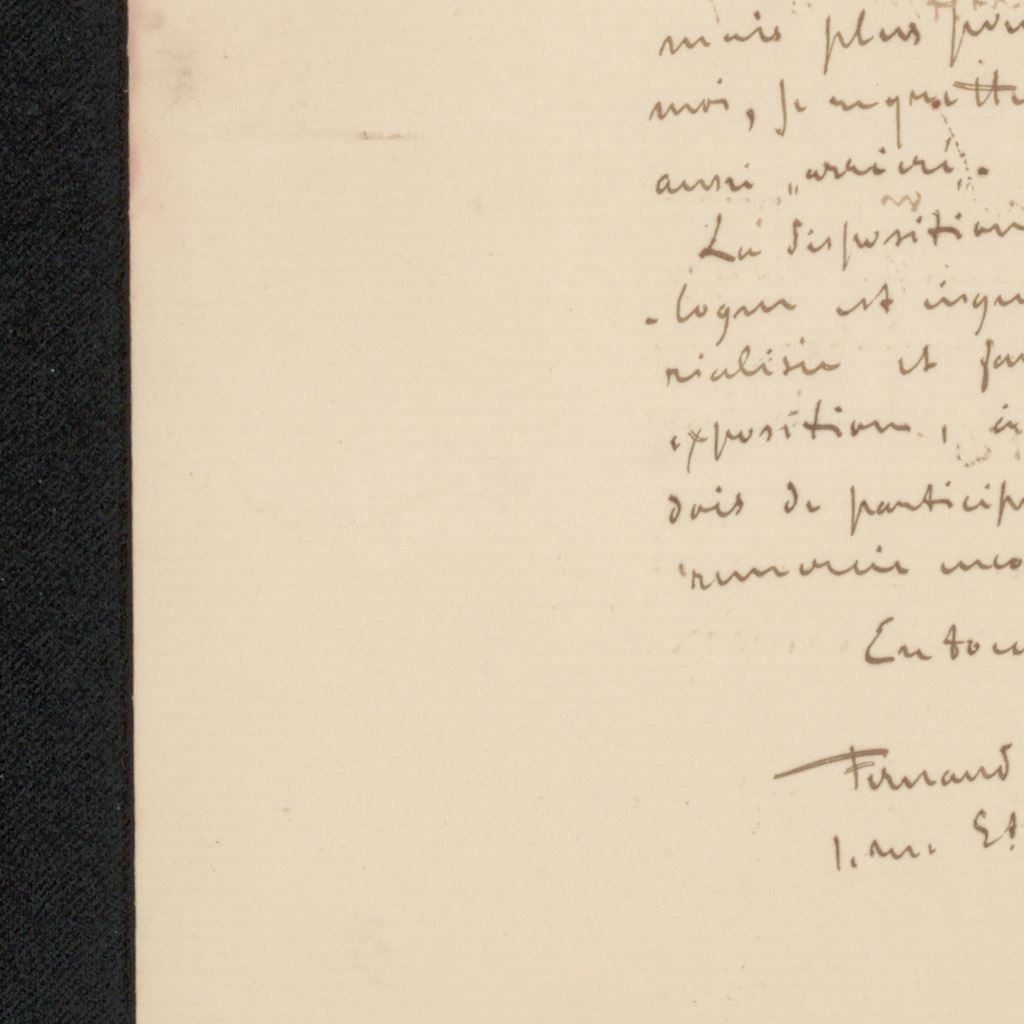 mais plus pou
moi, je regrette
aussi „arriéré".
La disposition
-logue est
rialisée et fa
exposition,
dois de particip
renouvelé
En tou
Fernand
1. rue. Et